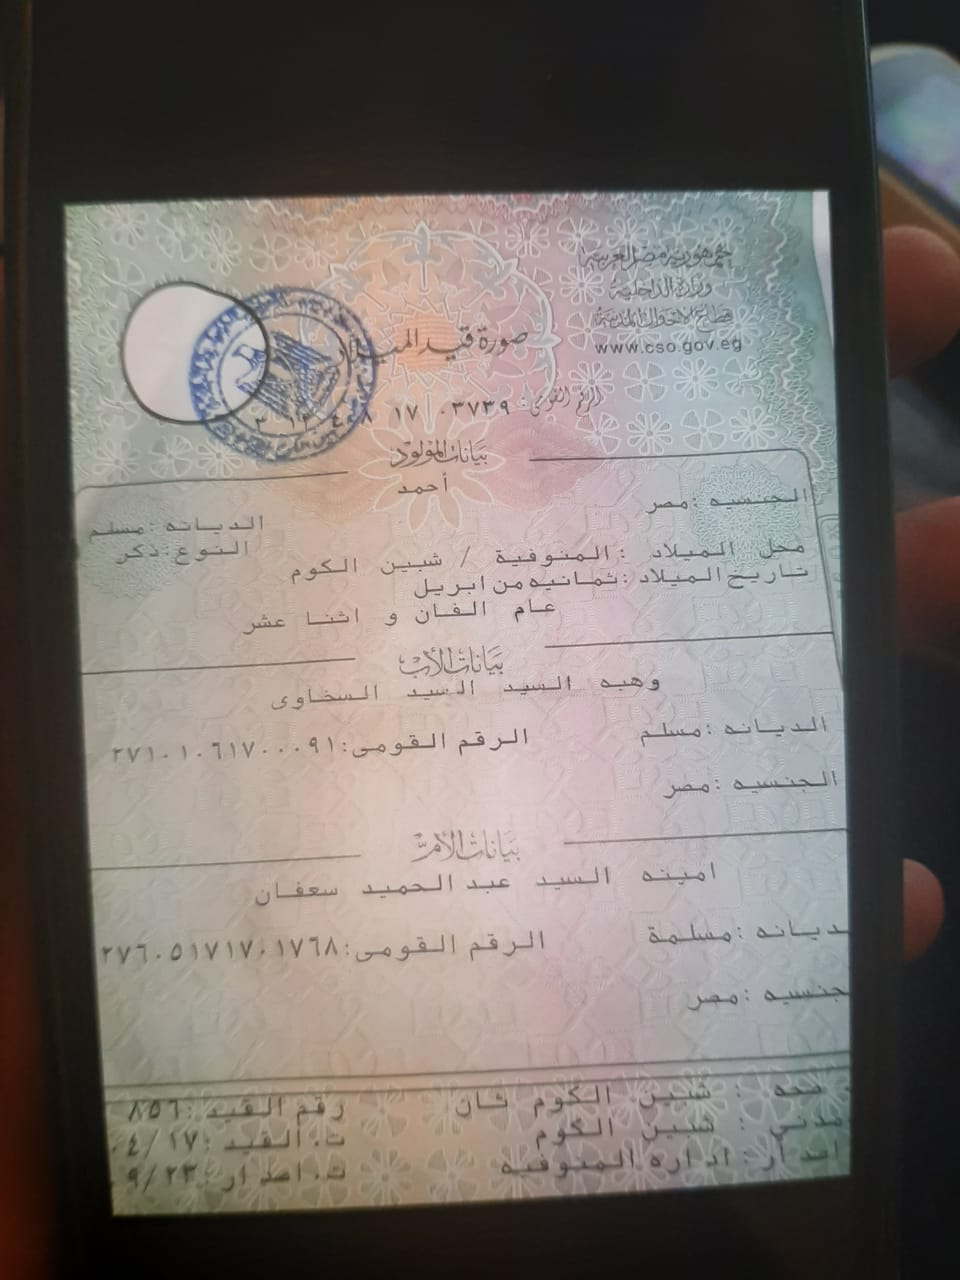 جمهورية مصر العربية
وزارة الداخلية
قطاع الأحوال المدنية
www.cso.gov.eg
صورة قيد الميلاد
الرقم القومى: ٣ ١٢ ٤ ٨ ١٧ ٠٣٧٣٩
بيانات المولود
أحمد
الجنسيه :مصر
الديانه :مسلم
النوع :ذكر
محل الميلاد : المنوفية / شبين الكوم
تاريخ الميلاد :ثمانيه من ابريل
عام الفان و اثنا عشر
بيانات الأب
وهبه السيد السيد السخاوى
الديانه :مسلم
الرقم القومى:٢٧١٠١٠٦١٧٠٠٠٩١
الجنسيه :مصر
بيانات الأم
امينه السيد عبد الحميد سعفان
ديانه :مسلمة
الرقم القومى:٢٧٦٠٥١٧١٧٠١٧٦٨
جنسيه :مصر
صحه : شبين الكوم ثان
رقم القيد :٨٥٦
مدني : شبين الكوم
ت. القيد :١٧/٠٤
اصدار: اداره المنوفيه
ت. اصدار:٢٣/٩